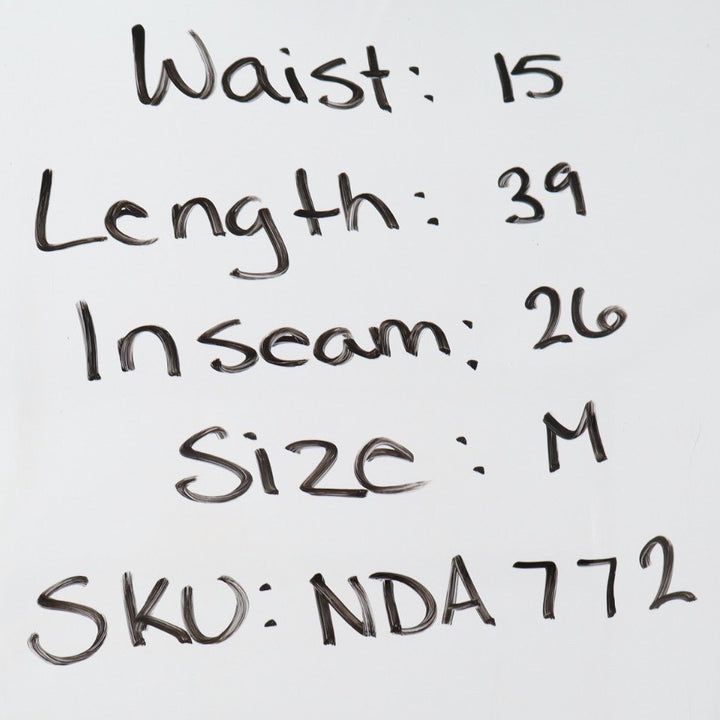 Waist: 15
Length: 39
Inseam: 26
Size: M
SKU: NDA772